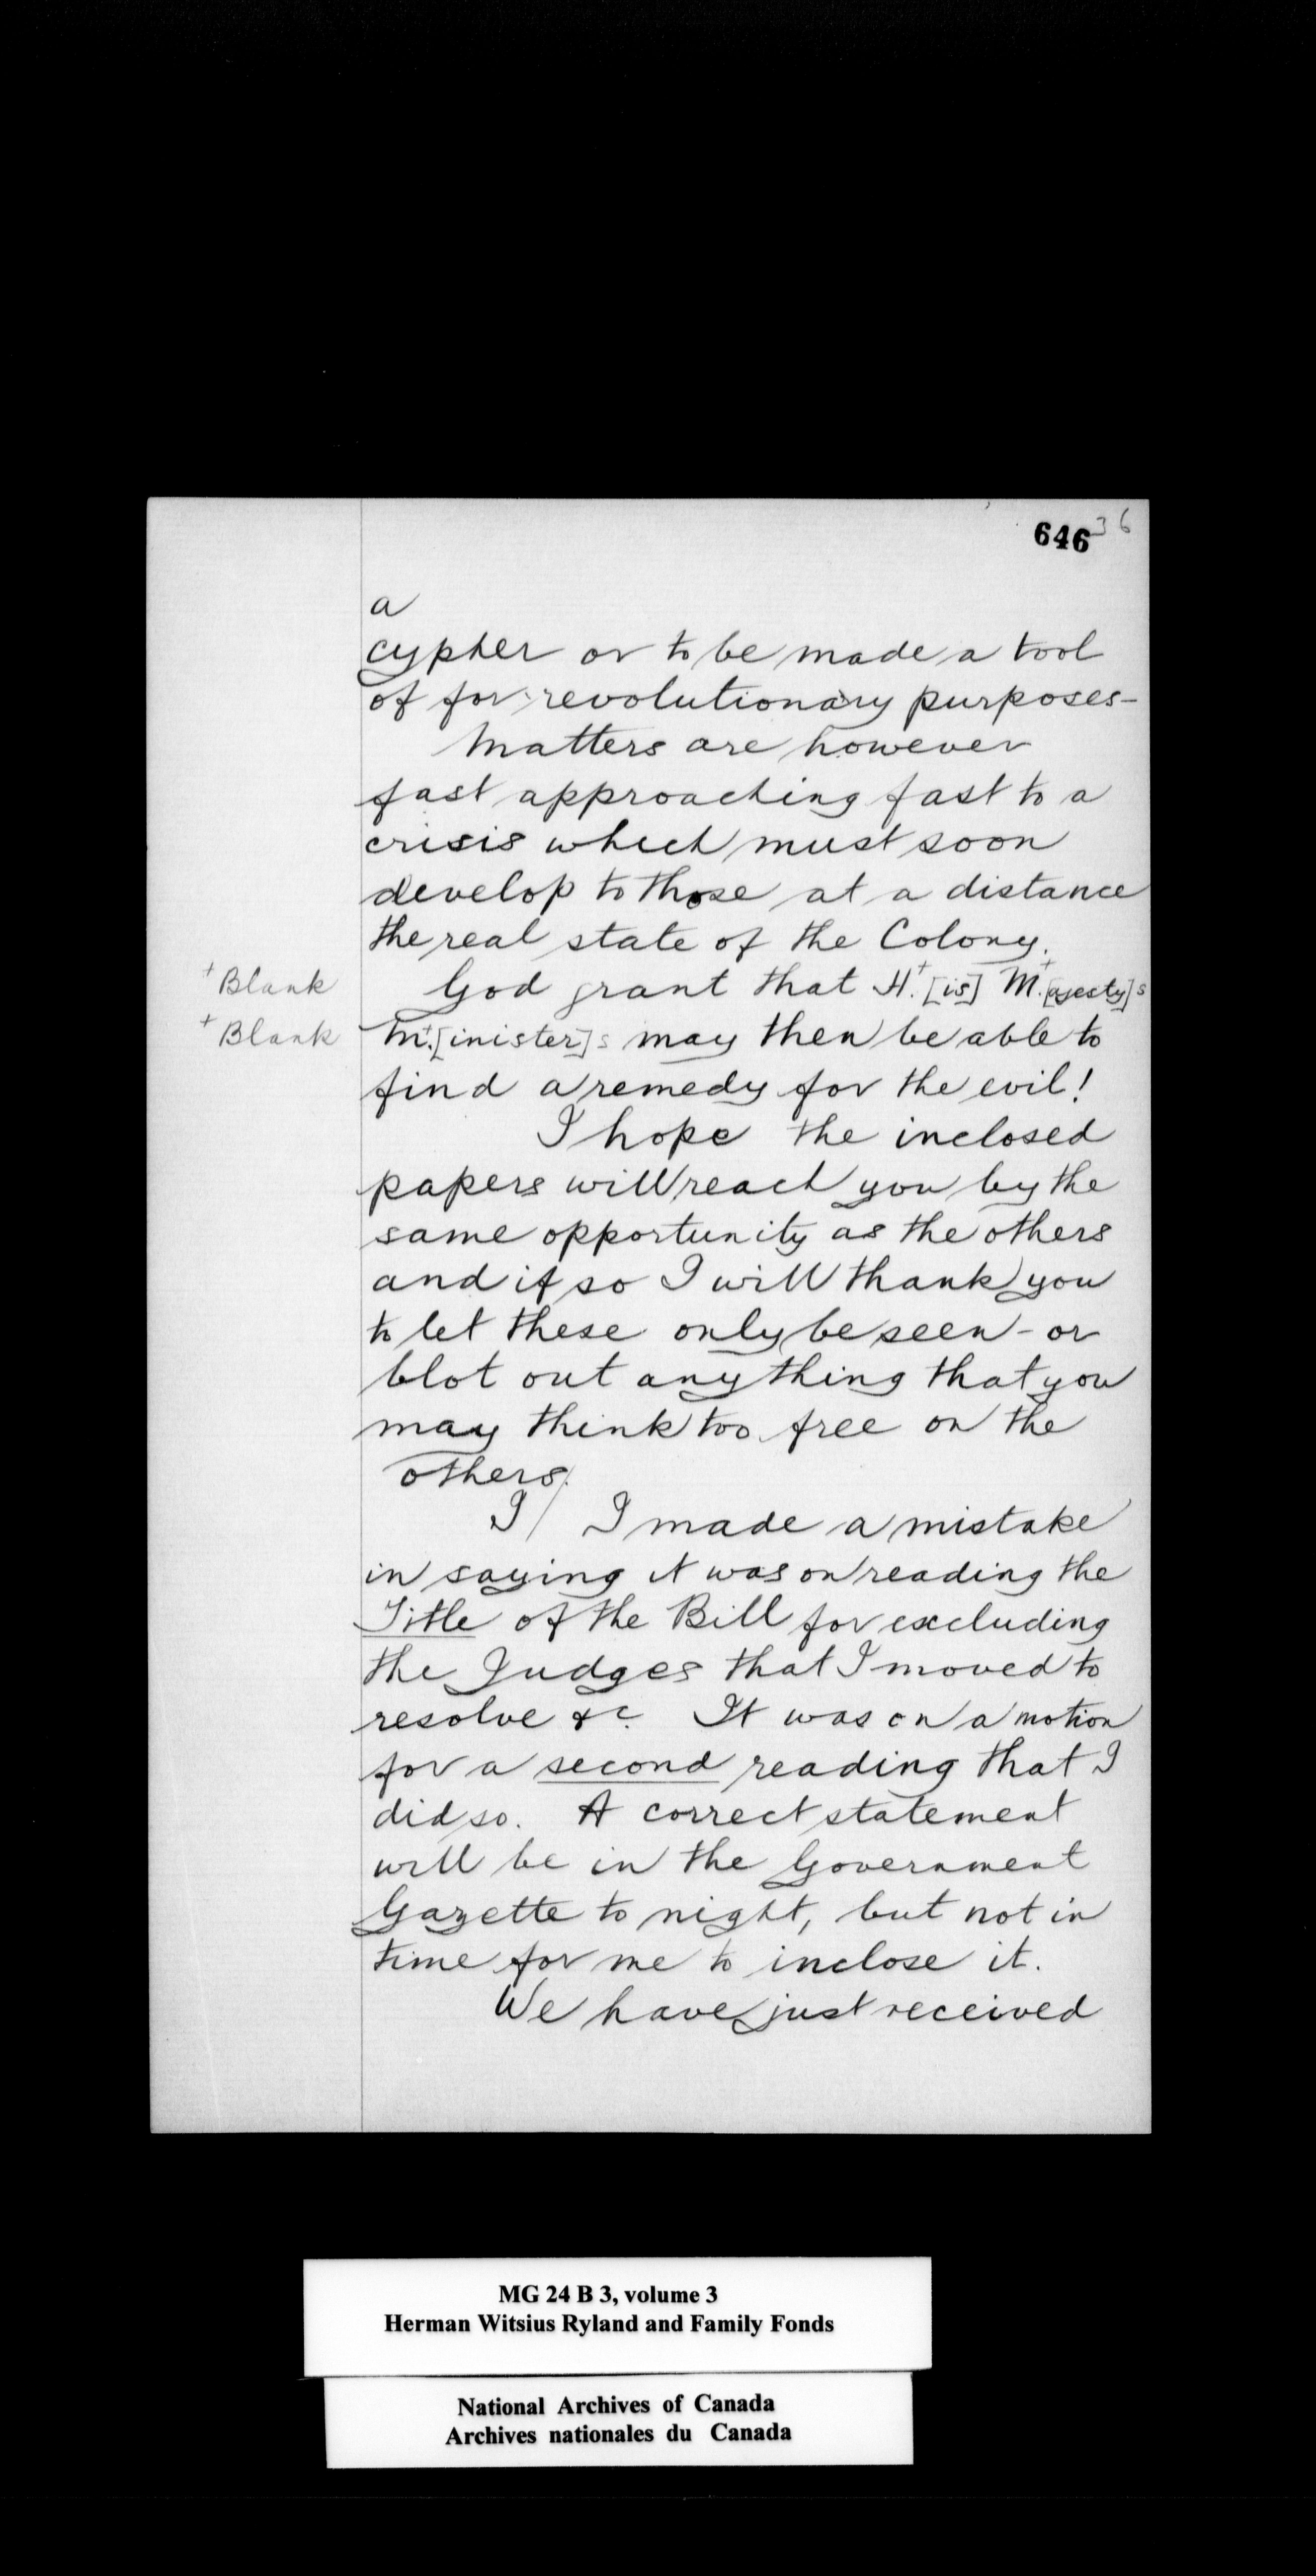 646 36
a
cypher or to be made a tool
of for revolutionary purposes-
Matters are however
fast approaching fast to a
crisis which must soon
develop to those at a distance
the real state of the Colony.
+Blank God grant that H.+[is] M.+[ajesty]s
+Blank M.+[inister]s may then be able to
find a remedy for the evil!
I hope the inclosed
papers will reach you by the
same opportunity as the others
and if so I will thank you
to let these only be seen - or
blot out anything that you
may think too free on the
others.
I/ I made a mistake
in saying it was on reading the
Title of the Bill for excluding
the Judges that I moved to
resolve &c. It was on a motion
for a second reading that I
did so. A correct statement
will be in the Government
Gazette to night, but not in
time for me to inclose it.
We have just received
MG 24 B 3, volume 3
Herman Witsius Ryland and Family Fonds
National Archives of Canada
Archives nationales du Canada